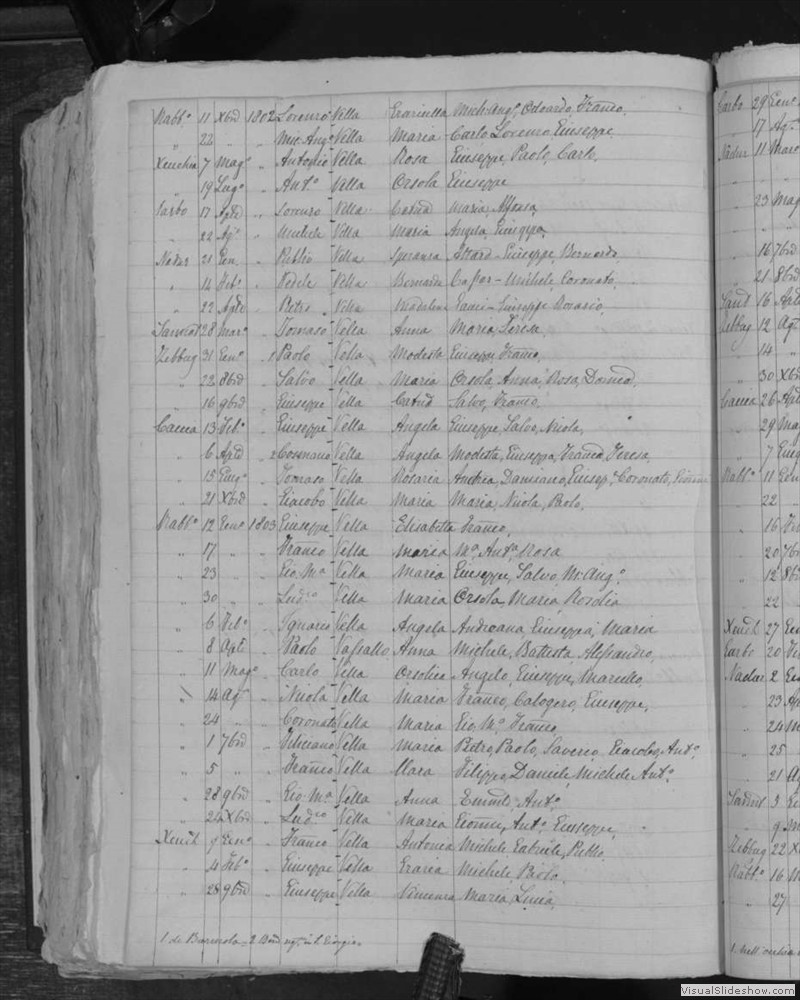 Rabb.o 11 Xbrē 1802 Lorenzo Vella Grazietta Mich: Ang.o, Odoardo, Franco,
" 22 " " Mic: Ang.o Vella Maria Carlo Lorenzo Giuseppe
Xeuchia 7 Mag.o " Antonio Vella Rosa Giuseppe, Paolo, Carlo,
" 19 Lug.o " Ant.o Vella Orsola Giuseppe
Garbo 17 Aplē " Lorenzo Vella Catnā Maria, Alfonsa,
" 22 Ag.o " Michele Vella Maria Angela, Giuseppa,
Nadur 21 Gen. " Publio Vella Speranza Attard - Giuseppe, Bernardo,
" 14 Feb.o " Fedele Vella Bernarda Caspar - Michele, Coronato,
" 22 Aplē " Pietro Vella Madalena Giuseppe Rosario,
Sannat 28 Mar.o " Tomaso Vella Anna Maria, Teresa,
Zebbug 31 Gen.o 1 Paolo Vella Modesta Giuseppe Franco,
" 22 8brē " Salvo Vella Maria Orsola, Anna, Rosa, Domca,
" 16 9brē " Giuseppe Vella Catnā Salvo, Franco,
Caccia 13 Feb.o " Giuseppe Vella Angela Giuseppe, Salvo, Nicola,
" 6 Aplē " 2 Cosmano Vella Angela Modesta, Giuseppa, Franca, Teresa,
" 15 Giug.o " Tomaso Vella Rosaria Andrea, Damiano, Giusep.e Coronato,
" 21 Xbrē " Giacobo Vella Maria Maria, Nicola, Paolo,
Rabb.o 12 Gen.o 1803 Giuseppe Vella Elisabetta Franco,
" 17 " " Franco Vella Maria M.a Ant.a Rosa
" 23 " " Gio. M.a Vella Maria Giuseppe, Salvo, M. Ang.o,
" 30 " " Lud.co Vella Maria Orsola, Maria, Rosolia
" 6 Feb.o " Ignazio Vella Angela Andreana, Giuseppa, Maria
" 8 Aplē " Paolo Vassallo Anna Michele, Battista, Alessandro,
" 11 Mag.o " Carlo Vella Orsolica Angelo, Giuseppe, Marcello,
" 14 Ag.o " Nicola Vella Maria Franco, Calogero, Giuseppe,
" 24 " " Coronato Vella Maria Gio. M.a Franco,
" 1 7brē " Feliciano Vella Maria Pietro, Paolo, Saverio, Giacobo, Ant.o,
" 5 " " Franco Vella Clara Filippo, Daniele, Michele Ant.o,
" 28 9brē " Gio. M.a Vella Anna Emanle, Ant.o,
" 24 Xbrē " Lud.co Vella Maria Ant.o, Giuseppe,
Xeuch. 9 Gen.o " Franco Vella Antonia Michele, Gabriele, Publio,
" 4 Feb.o " Giuseppe Vella Grazia Michele Paolo,
" 28 9brē " Giuseppe Vella Vincenza Maria, Lucia,
1 de Barmola
Garbo 29 Gen.o
" 17 Ag.o
Nadur 11 Marz
" 23 Mag
" 16 7brē
" 21 8brē
Sand 16 Aplē
Zebbug 12 Apl
" 14 "
" 30 Xbrē
Caccia 26 Aplē
" 29 Mag
" 7 Giug
Rabb.o 11 Gen
" 22 "
" 16
" 20 7brē
" 12 8brē
" 22 "
Xeuch 27 Gen
Garbo 20
Nadur 2 Gen
" 23 Ap
" 24 M
" 25 "
" 21 Ag
3
9
Zebbug 22 X
Rabb.o 16 M
" 27
VisualSlideshow.com